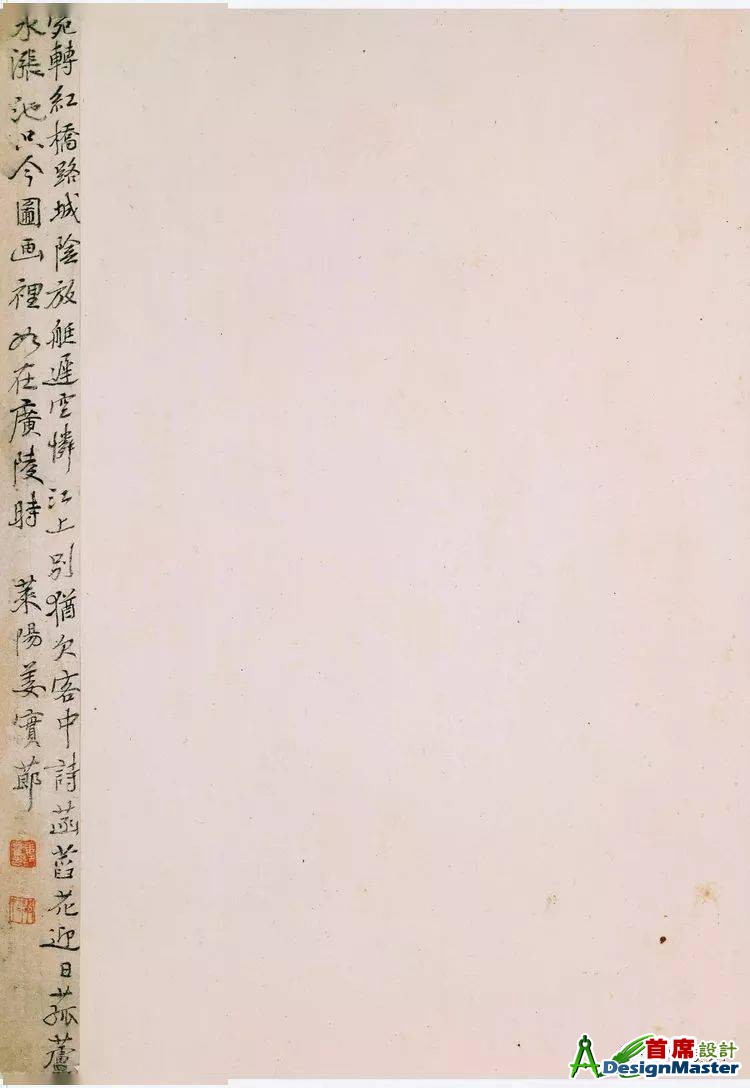 宛轉紅橋路城陰放艇遲空憐江上別猶欠客中詩菡萏花迎日菰蘆
水漲池只今圖画裡如在廣陵時 萊陽姜實節
首席設計
DesignMaster